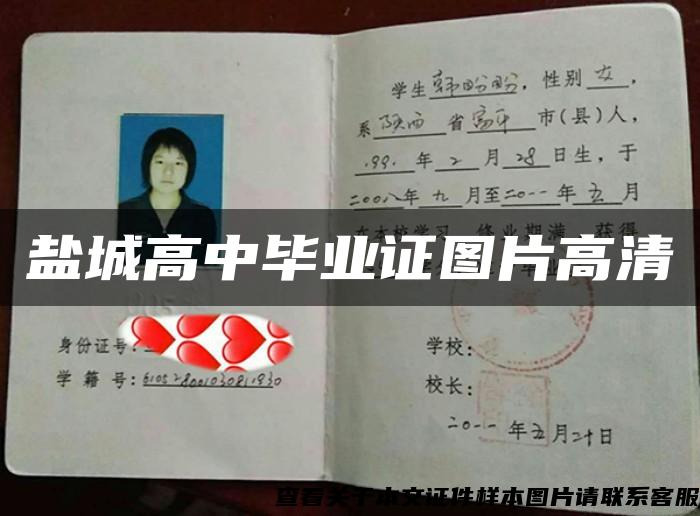 学生韩盼盼,性别女,
系陕西省富平市(县)人,
1991年2月28日生,于
二00八年九月至二0一一年五月
在本校学习 修业期满 获得
盐城高中毕业证图片高清
身份证号:
学籍号:
学校:
校长:
二0一一年五月二十日
查看关于本文证件样本图片请联系客服